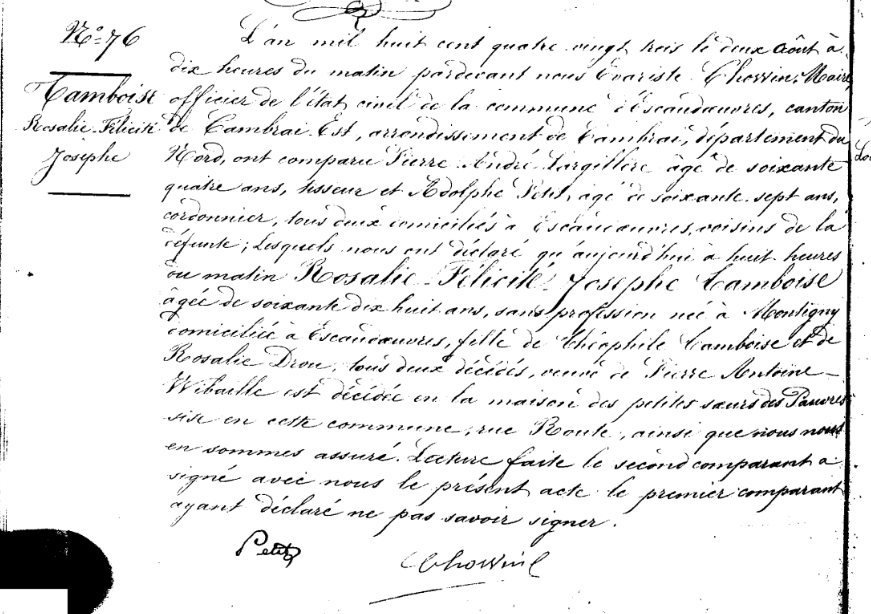 N° 76
Camboise
Rosalie Félicité
Josephe
L'an mil huit cent quatre vingt trois le deux Août à
dix heures du matin pardevant nous Evariste Chossin, Maire
officier de l'état civil de la commune d'Escaudœuvres, canton
de Cambrai Est, arrondissement de Cambrai, département du
Nord, ont comparu Pierre André Largillère âgé de soixante
quatre ans, tisseur et Adolphe Petit, âgé de soixante sept ans,
cordonnier, tous deux domiciliés à Escaudœuvres, voisins de la
défunte; lesquels nous ont déclaré qu'aujourd'hui à huit heures
du matin Rosalie Félicité Josephe Camboise
âgée de soixante dix huit ans, sans profession née à Montigny
domiciliée à Escaudœuvres, fille de Théophile Camboise et de
Rosalie Drou, tous deux décédés, veuve de Pierre Antoine
Wibaille est décédée en la maison des petites sœurs des Pauvres
sise en cette commune, rue Route, ainsi que nous nous
en sommes assuré. Lecture faite le second comparant a
signé avec nous le présent acte le premier comparant
ayant déclaré ne pas savoir signer.
Petit